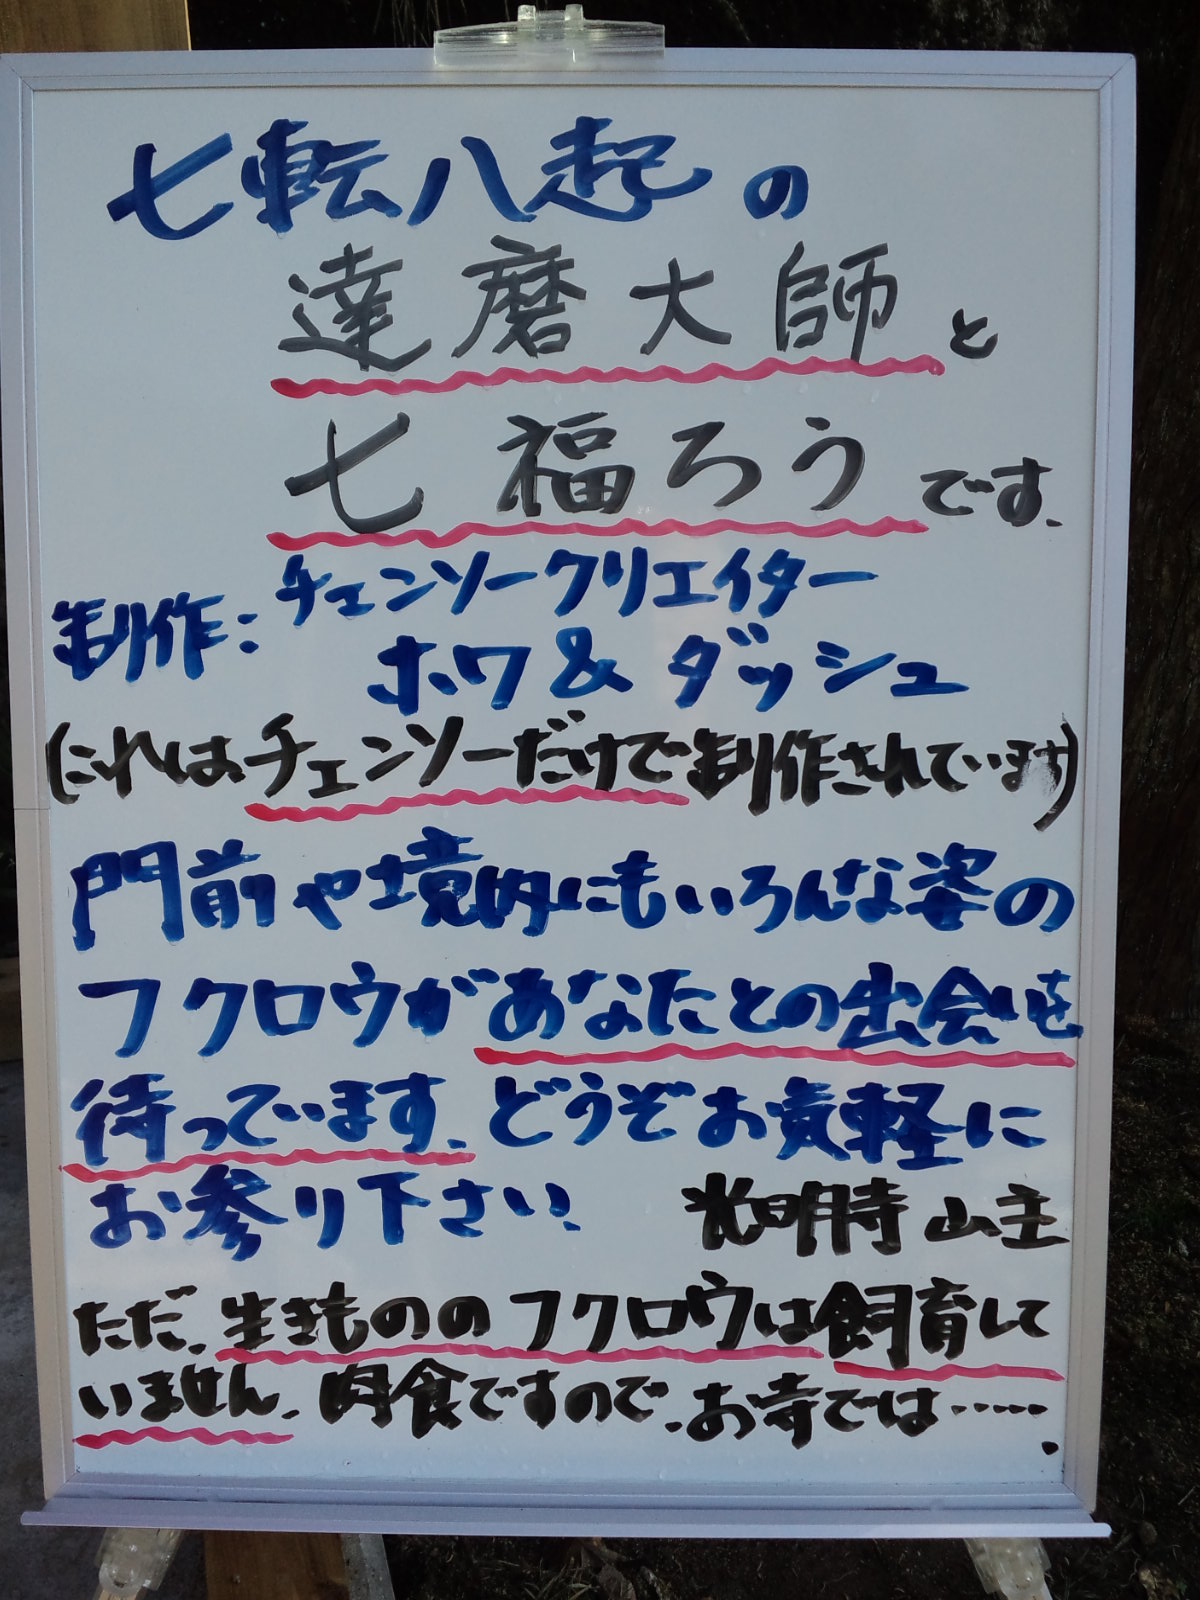 七転八起の
達磨大師と
七福ろうです.
制作:チェンソークリエイター
ホワ&ダッシュ
(これはチェンソーだけで制作されています)
門前や境内にもいろんな姿の
フクロウがあなたとの出会いを
待っています.どうぞお気軽に
お参り下さい. 光明寺 山主
ただ、生きもののフクロウは飼育して
いません.肉食ですので、お寺では……．